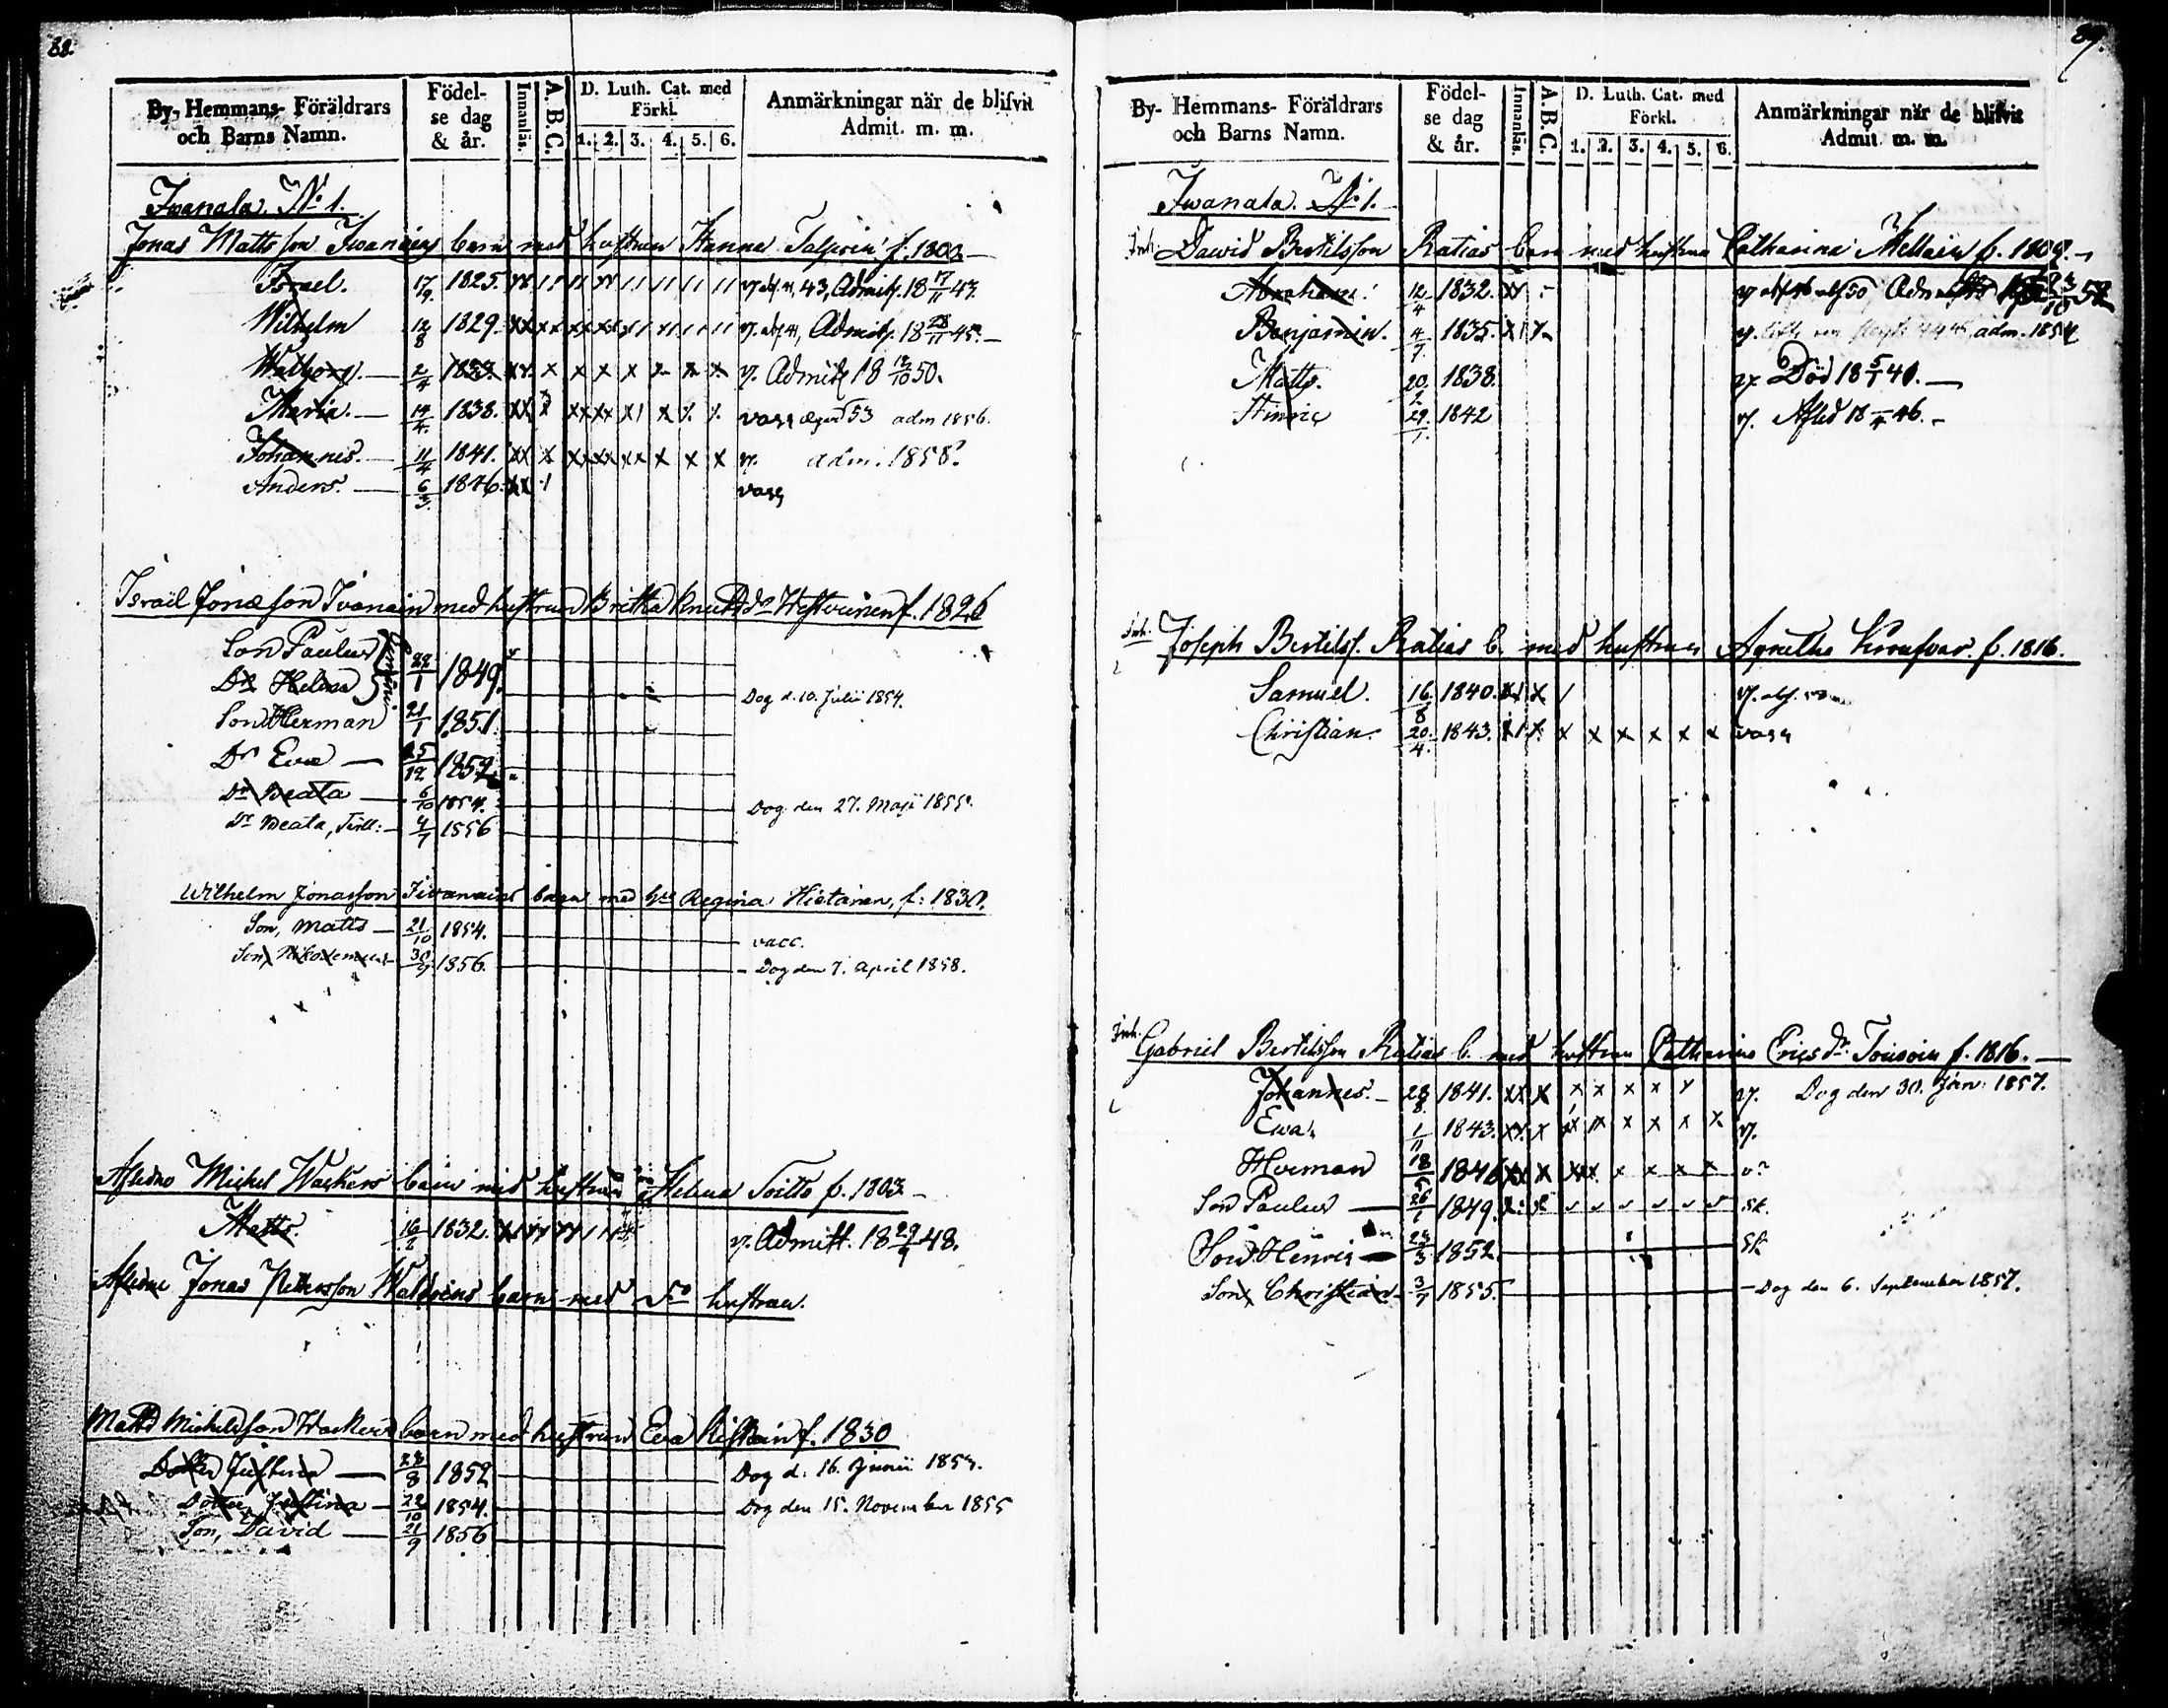 88.
By- Hemmans- Föräldrars och Barns Namn.
Födel- se dag & år.
Innanläs.
A. B. C.
D. Luth. Cat. med Förkl.
1. 2. 3. 4. 5. 6.
Anmärkningar när de blifvit Admit. m. m.
Iwanala. No 1.
Jonas Mattsson Iwanains barn med hustrun Hanna f. 1803.
Israel. 17/9 1825. Admitt. 18 17/11 43.
Wilhelm 12/8 1829. Admitt. 18 28/11 45.
Walborg. 2/4 1833. v. Admitt 18 13/10 50.
Maria. 14/4 1838. vacc 53 adm 1856.
Johannes. 11/4 1841. v. adm. 1858.
Anders. 6/3 1846. vacc
Israel Jonasson Ivanain med hustrun Britha Knutsdr f. 1826
Son Paulus 22/1 1849.
Dr Helena Dog d. 10. Julii 1854.
Son Herman 21/1 1851.
Dr Eva 25/12 1852
Dr Beata 6/10 1854. Dog den 27. Maji 1855.
Dr Beata, 4/7 1856
Wilhelm Jonasson Iwanains barn med hu Regina Hietainen, f: 1830.
Son, Matts 21/10 1854. vacc.
Son, Nikodemus 30/9 1856. Dog den 7. April 1858.
Afledne Michel Wackers barn med hustrun Helena Soitto f. 1803
Matts. 16/2 1832. v. Admitt. 18 29/9 48.
Afledne Jonas Pettersson barn med do hustrun.
Matts Michelsson Wackers barn med hustrun Eva f. 1830
Dotter Justina 28/8 1852 Dog d: 16. Junii 1853.
Dotter Justina 22/10 1854. Dog den 15. November 1855
Son, David 21/9 1856
89.
By- Hemmans- Föräldrars och Barns Namn.
Födel- se dag & år.
Innanläs.
A. B. C.
D. Luth. Cat. med Förkl.
1. 2. 3. 4. 5. 6.
Anmärkningar när de blifvit Admit. m. m.
Iwanala. No 1.
Inh. Dawid Bertilsson Ratias barn med hustrun Catharina f. 1809.
Abraham. 12/4 1832.
Benjamin. 4/7 1835. adm. 1854
Matts. 20/2 1838. v. Död 18 5/1 40.
Hinric 29/1 1842 v. Afled 18 46.
Inh. Joseph Bertilss. Ratias b. med hustrun Agnetha f. 1816.
Samuel. 16/8 1840.
Christian. 20/4 1843. vacc
Inh. Gabriel Bertilsson Ratias b. med hustrun Catharina Ericsdr. Toivoin f. 1816.
Johannes. 28/8 1841. v. Dog den 30. Jan: 1857.
Ewa. 1/11 1843. v.
Herman 18/5 1846
Son Paulus 26/1 1849.
Son Henric 23/3 1852.
Son, Christian 3/7 1855. Dog den 6. September 1857.